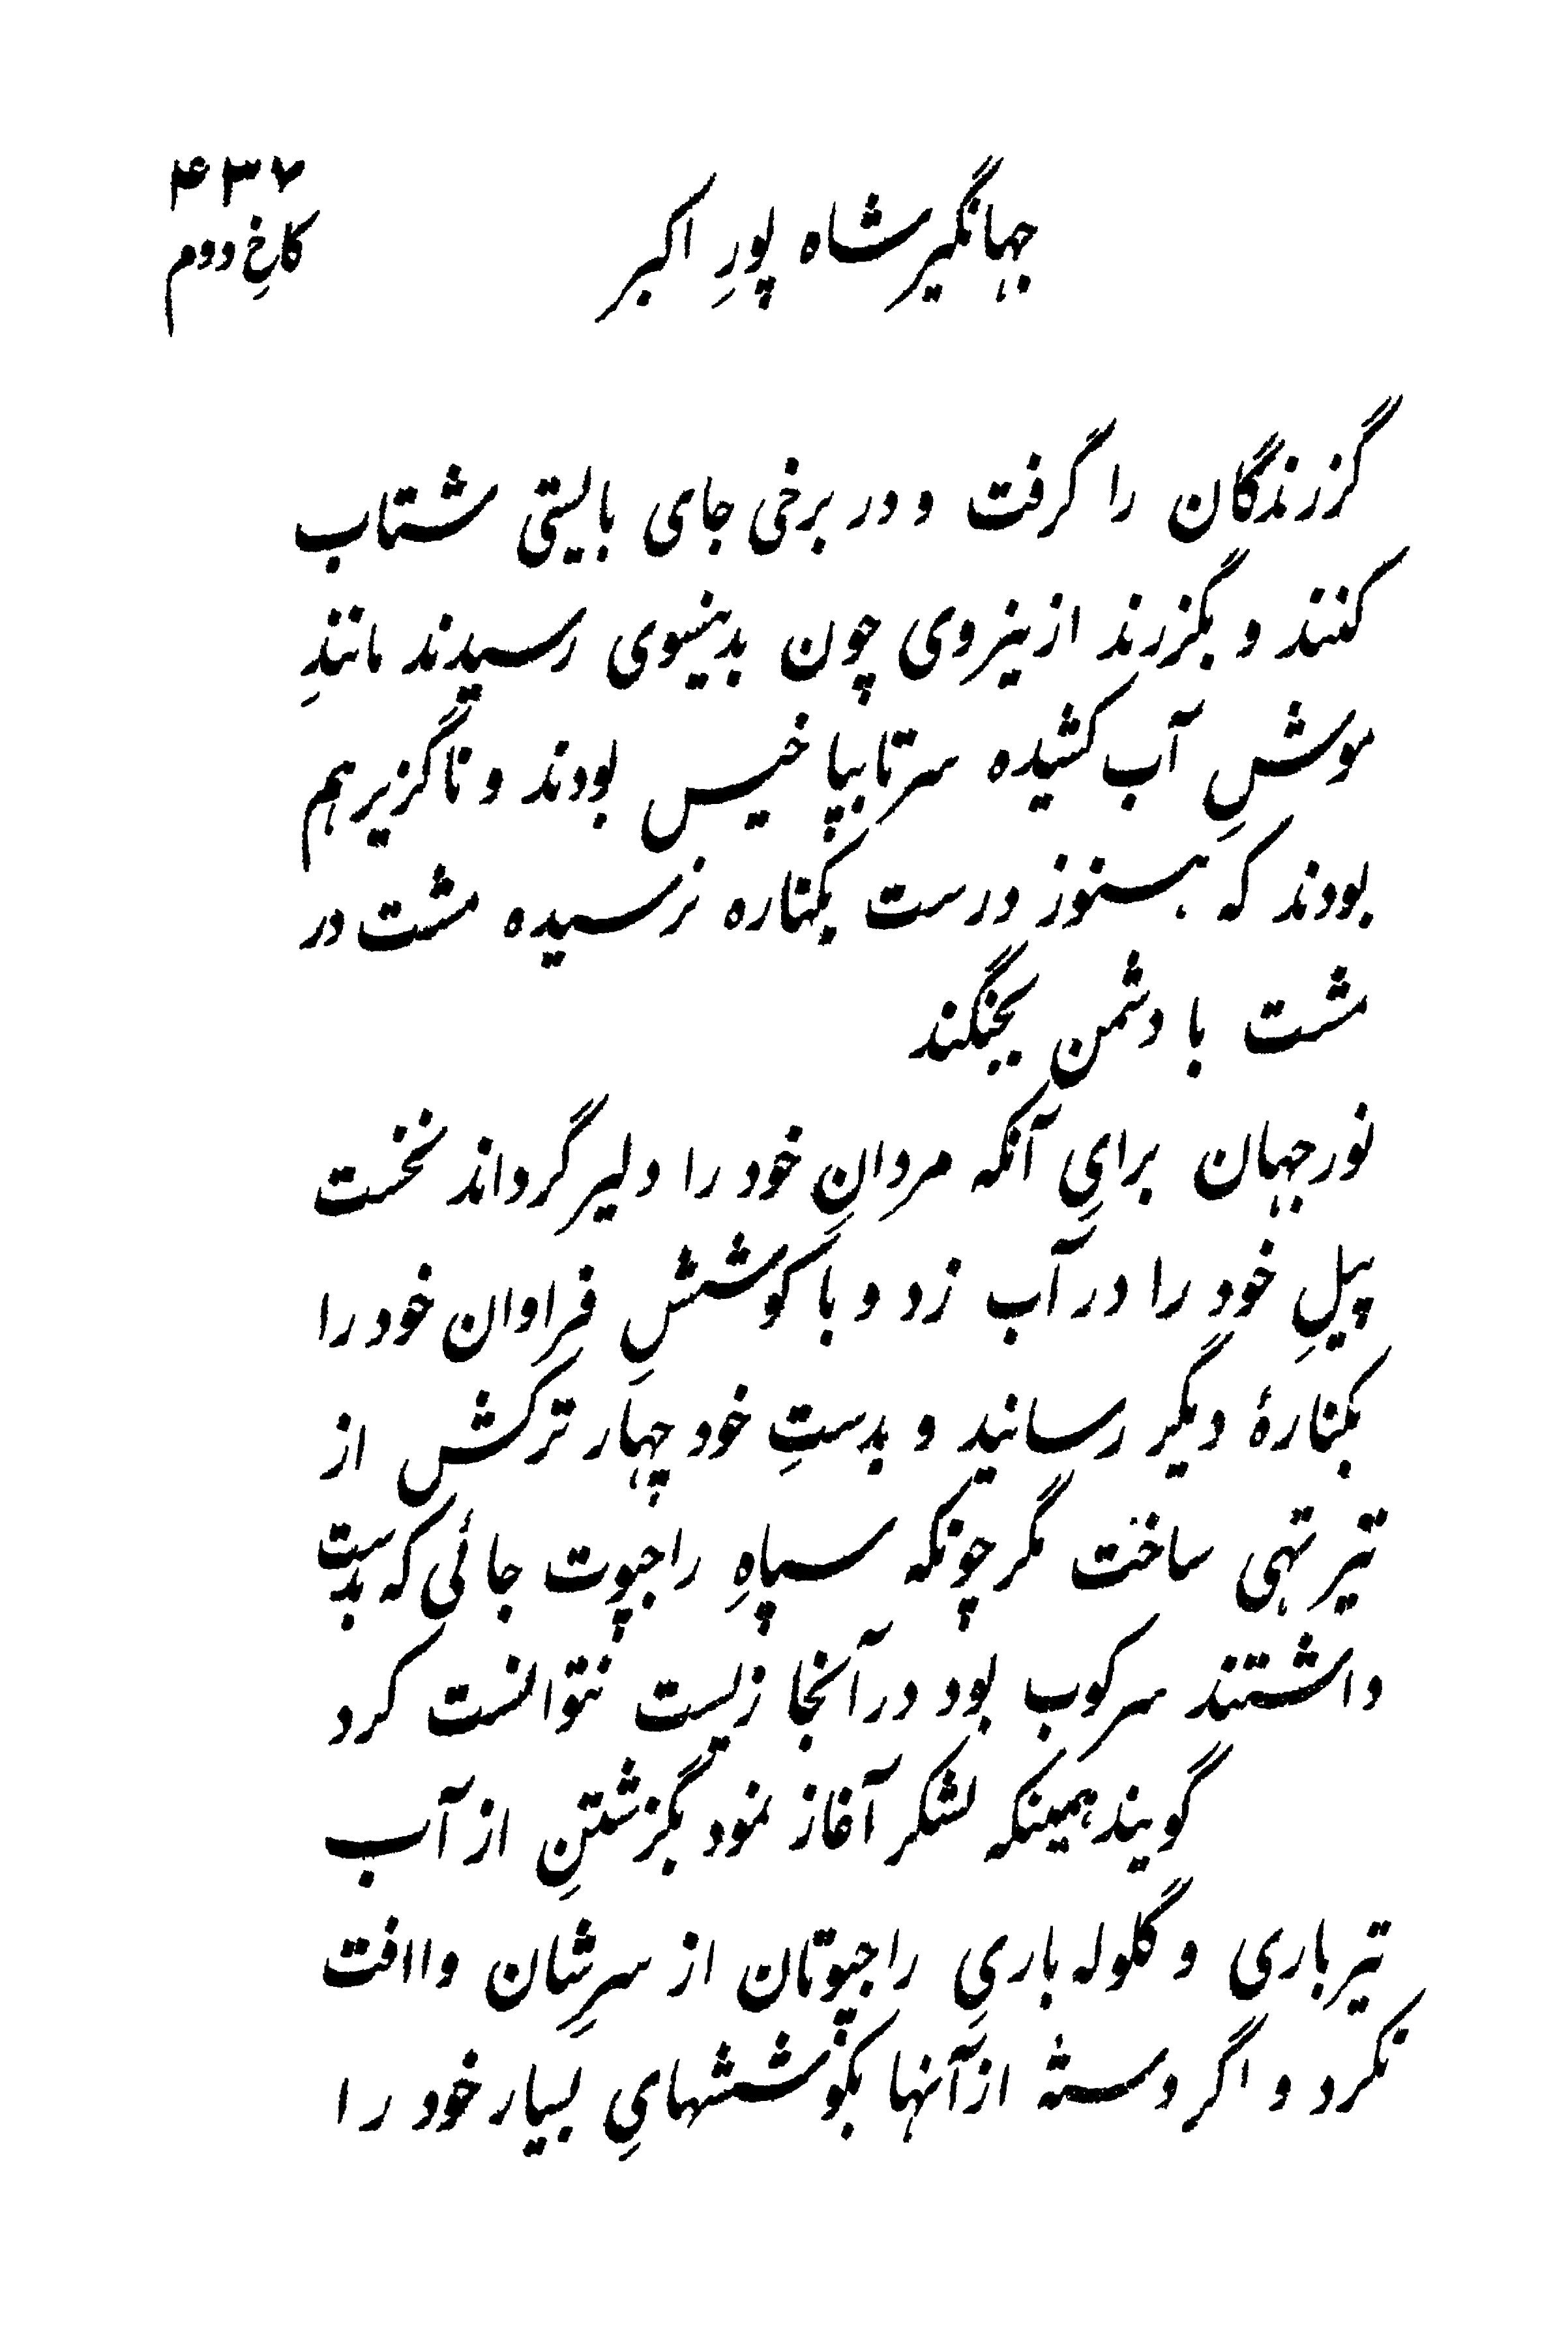 ۴۳۶
کاخِ دوم
جهانگیرشاه پورِ اکبر
گزرندگان را گرفت و در برخی جای بایستی شتاب
کنند و بگزرند ازینروی چون بدینسوی رسیدند مانندِ
موشِ آب کشیده سر تا بپا خیس بودند و ناگزیر هم
بودند که هنوز درست بکناره نرسیده مشت در
مشت با دشمن بجنگند
نورجهان برایِ آنکه مردانِ خود را دلیر گرداند نخست
پیلِ خود را در آب زد و با کوششِ فراوان خود را
بکنارهٔ دیگر رسانید و بدستِ خود چهار ترکش از
تیر تهی ساخت مگر چونکه سپاهِ راجپوت جائی که بدست
داشتند سرکوب بود در آنجا زیست نتوانست کرد
گویند همینکه لشکر آغاز نمود بگزشتنِ از آب
تیرباری و گلوله باریِ راجپوتان از سرِشان واافت
نکرد و اگر دستهٔ از آنها بکوششهایِ بسیار خود را